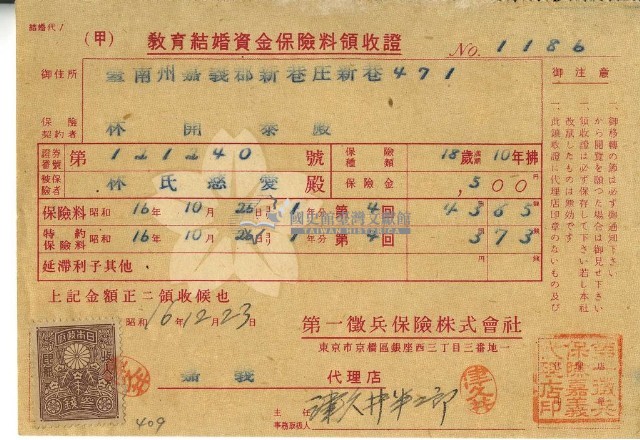 結婚代1
(甲) 教育結婚資金保險料領收證
No. 1186
御住所 臺南州嘉義郡新巷庄新巷471
保險契約者 林開泰殿
證券番號 第121240號 保險種類 18歲滿期10年拂
被保險者 林氏慈愛殿 保險金 ,500
保險料 昭和16年10月26日 1年分 第4回 4365
特約保險料 昭和16年10月26日 1年分 第4回 373
延滯利子其他
上記金額正ニ領收候也
昭和16.12.23
第一徵兵保險株式會社
東京市京橋區銀座西三丁目三番地一
嘉義 代理店
主任
事務取扱人
409
御注意
一、御移轉の節は必ず御通知下さい
一、領收證は必ず保存して下さい若し本社から閱覽を願つた場合は御見せ下さい
一、此領收證に代理店印章のないもの及び改竄したものは無效です
國史館臺灣文獻館
TAIWAN HISTORICA
第一徵兵保險嘉義代理店印